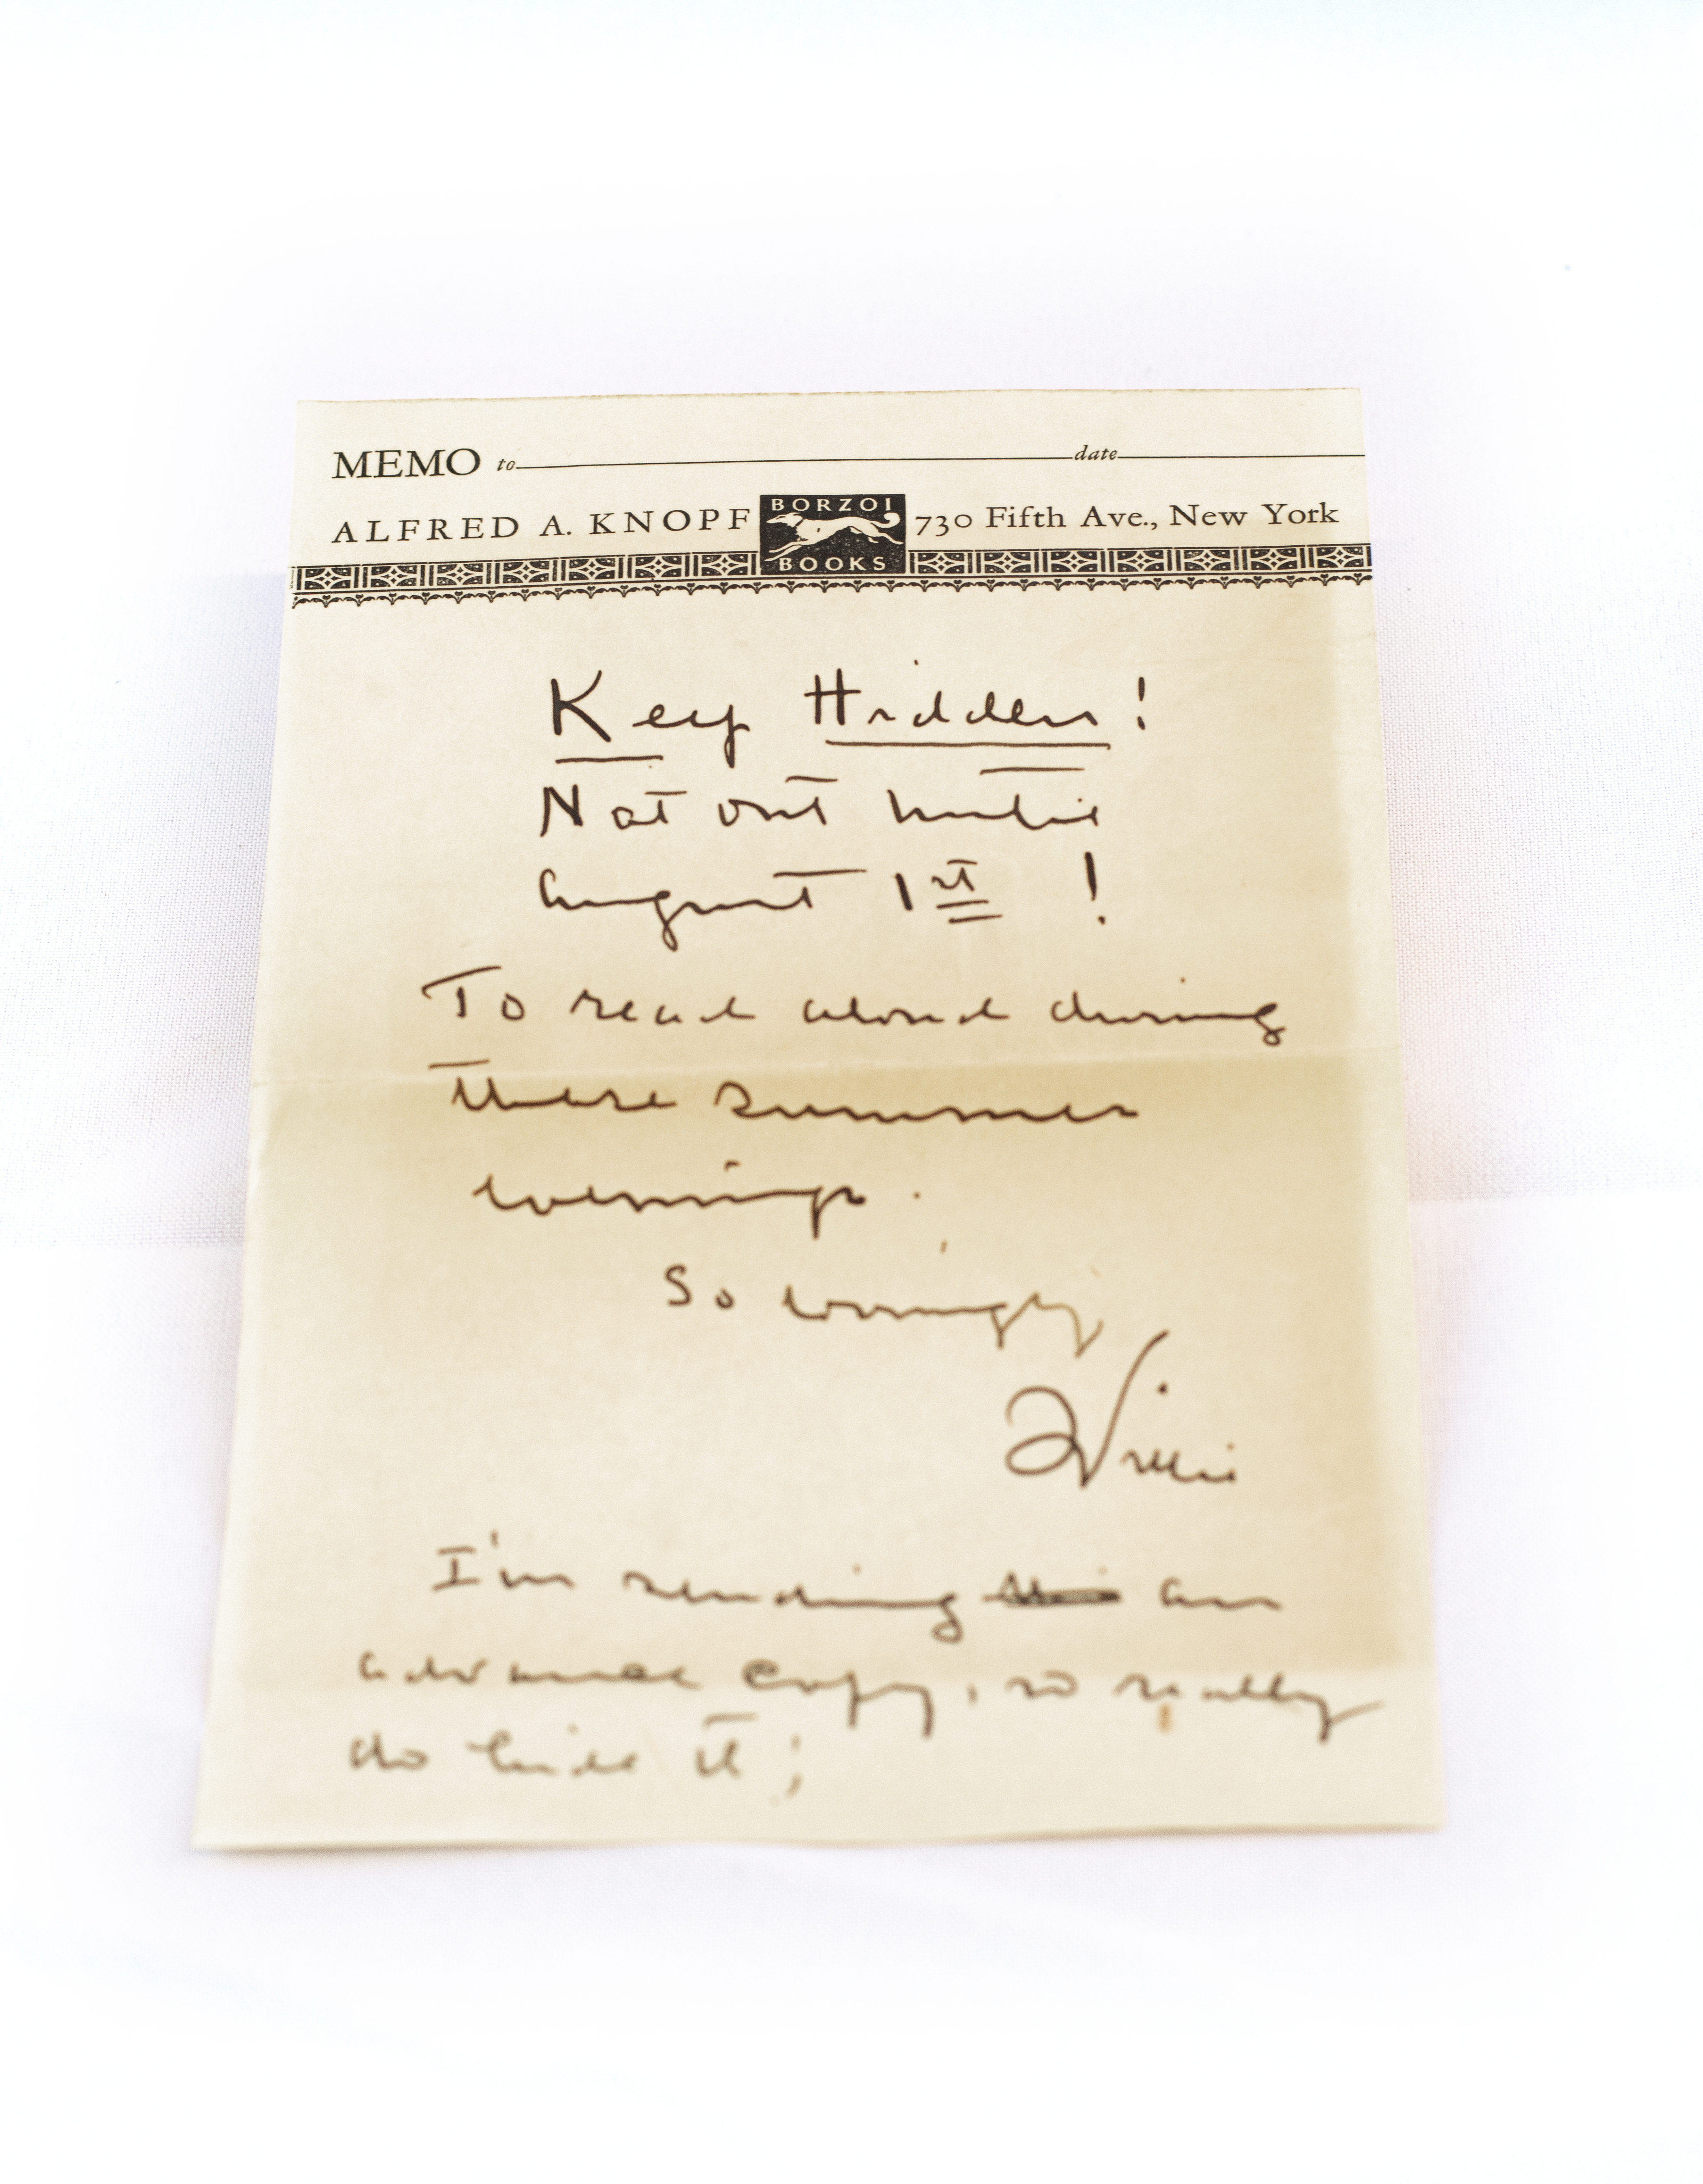 MEMO to date
ALFRED A. KNOPF BORZOI BOOKS 730 Fifth Ave., New York
Keep Hidden!
Not out until
August 1st !
To read aloud during
these summer
evenings.
So lovingly
Willie
I'm sending an
advance copy, so really
do hide it!